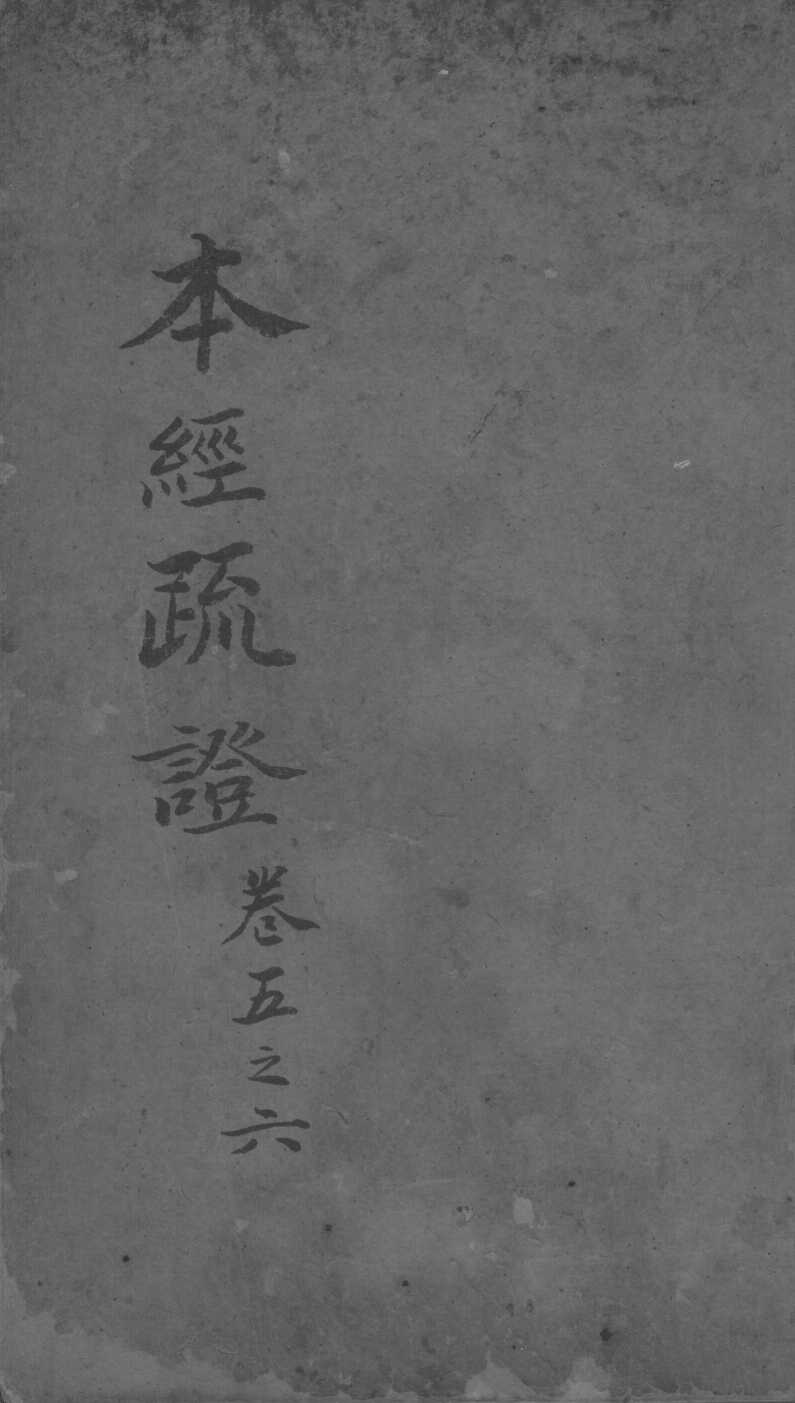 本經疏證
卷五之六